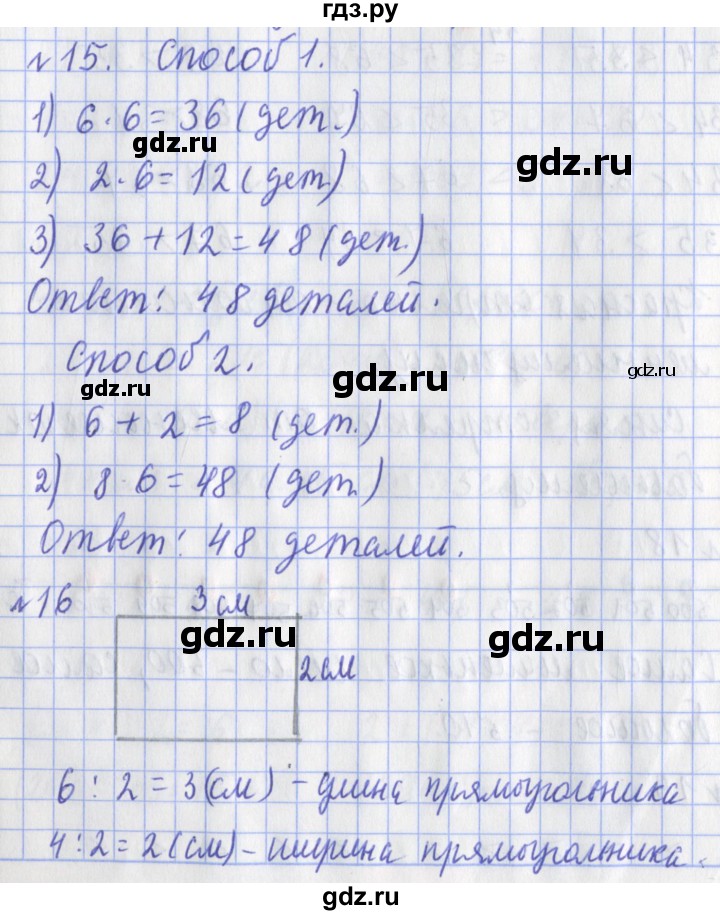 гдз.ру
№15. Способ 1.
1) 6·6=36(дет.)
gdz.ru
gdz.ru
2) 2·6=12(дет)
3) 36+12=48(дет.)
Ответ: 48 деталей.
Способ 2.
gdz.ru
gdz.ru
gdz.ru
1) 6+2=8(дет.)
2) 8·6=48(дет.)
Ответ: 48 деталей.
№16
3 см
gdz.ru
gdz.ru
2 см
6:2=3(см)-длина прямоугольника
4:2=2(см)-ширина прямоугольника.
gdz.ru